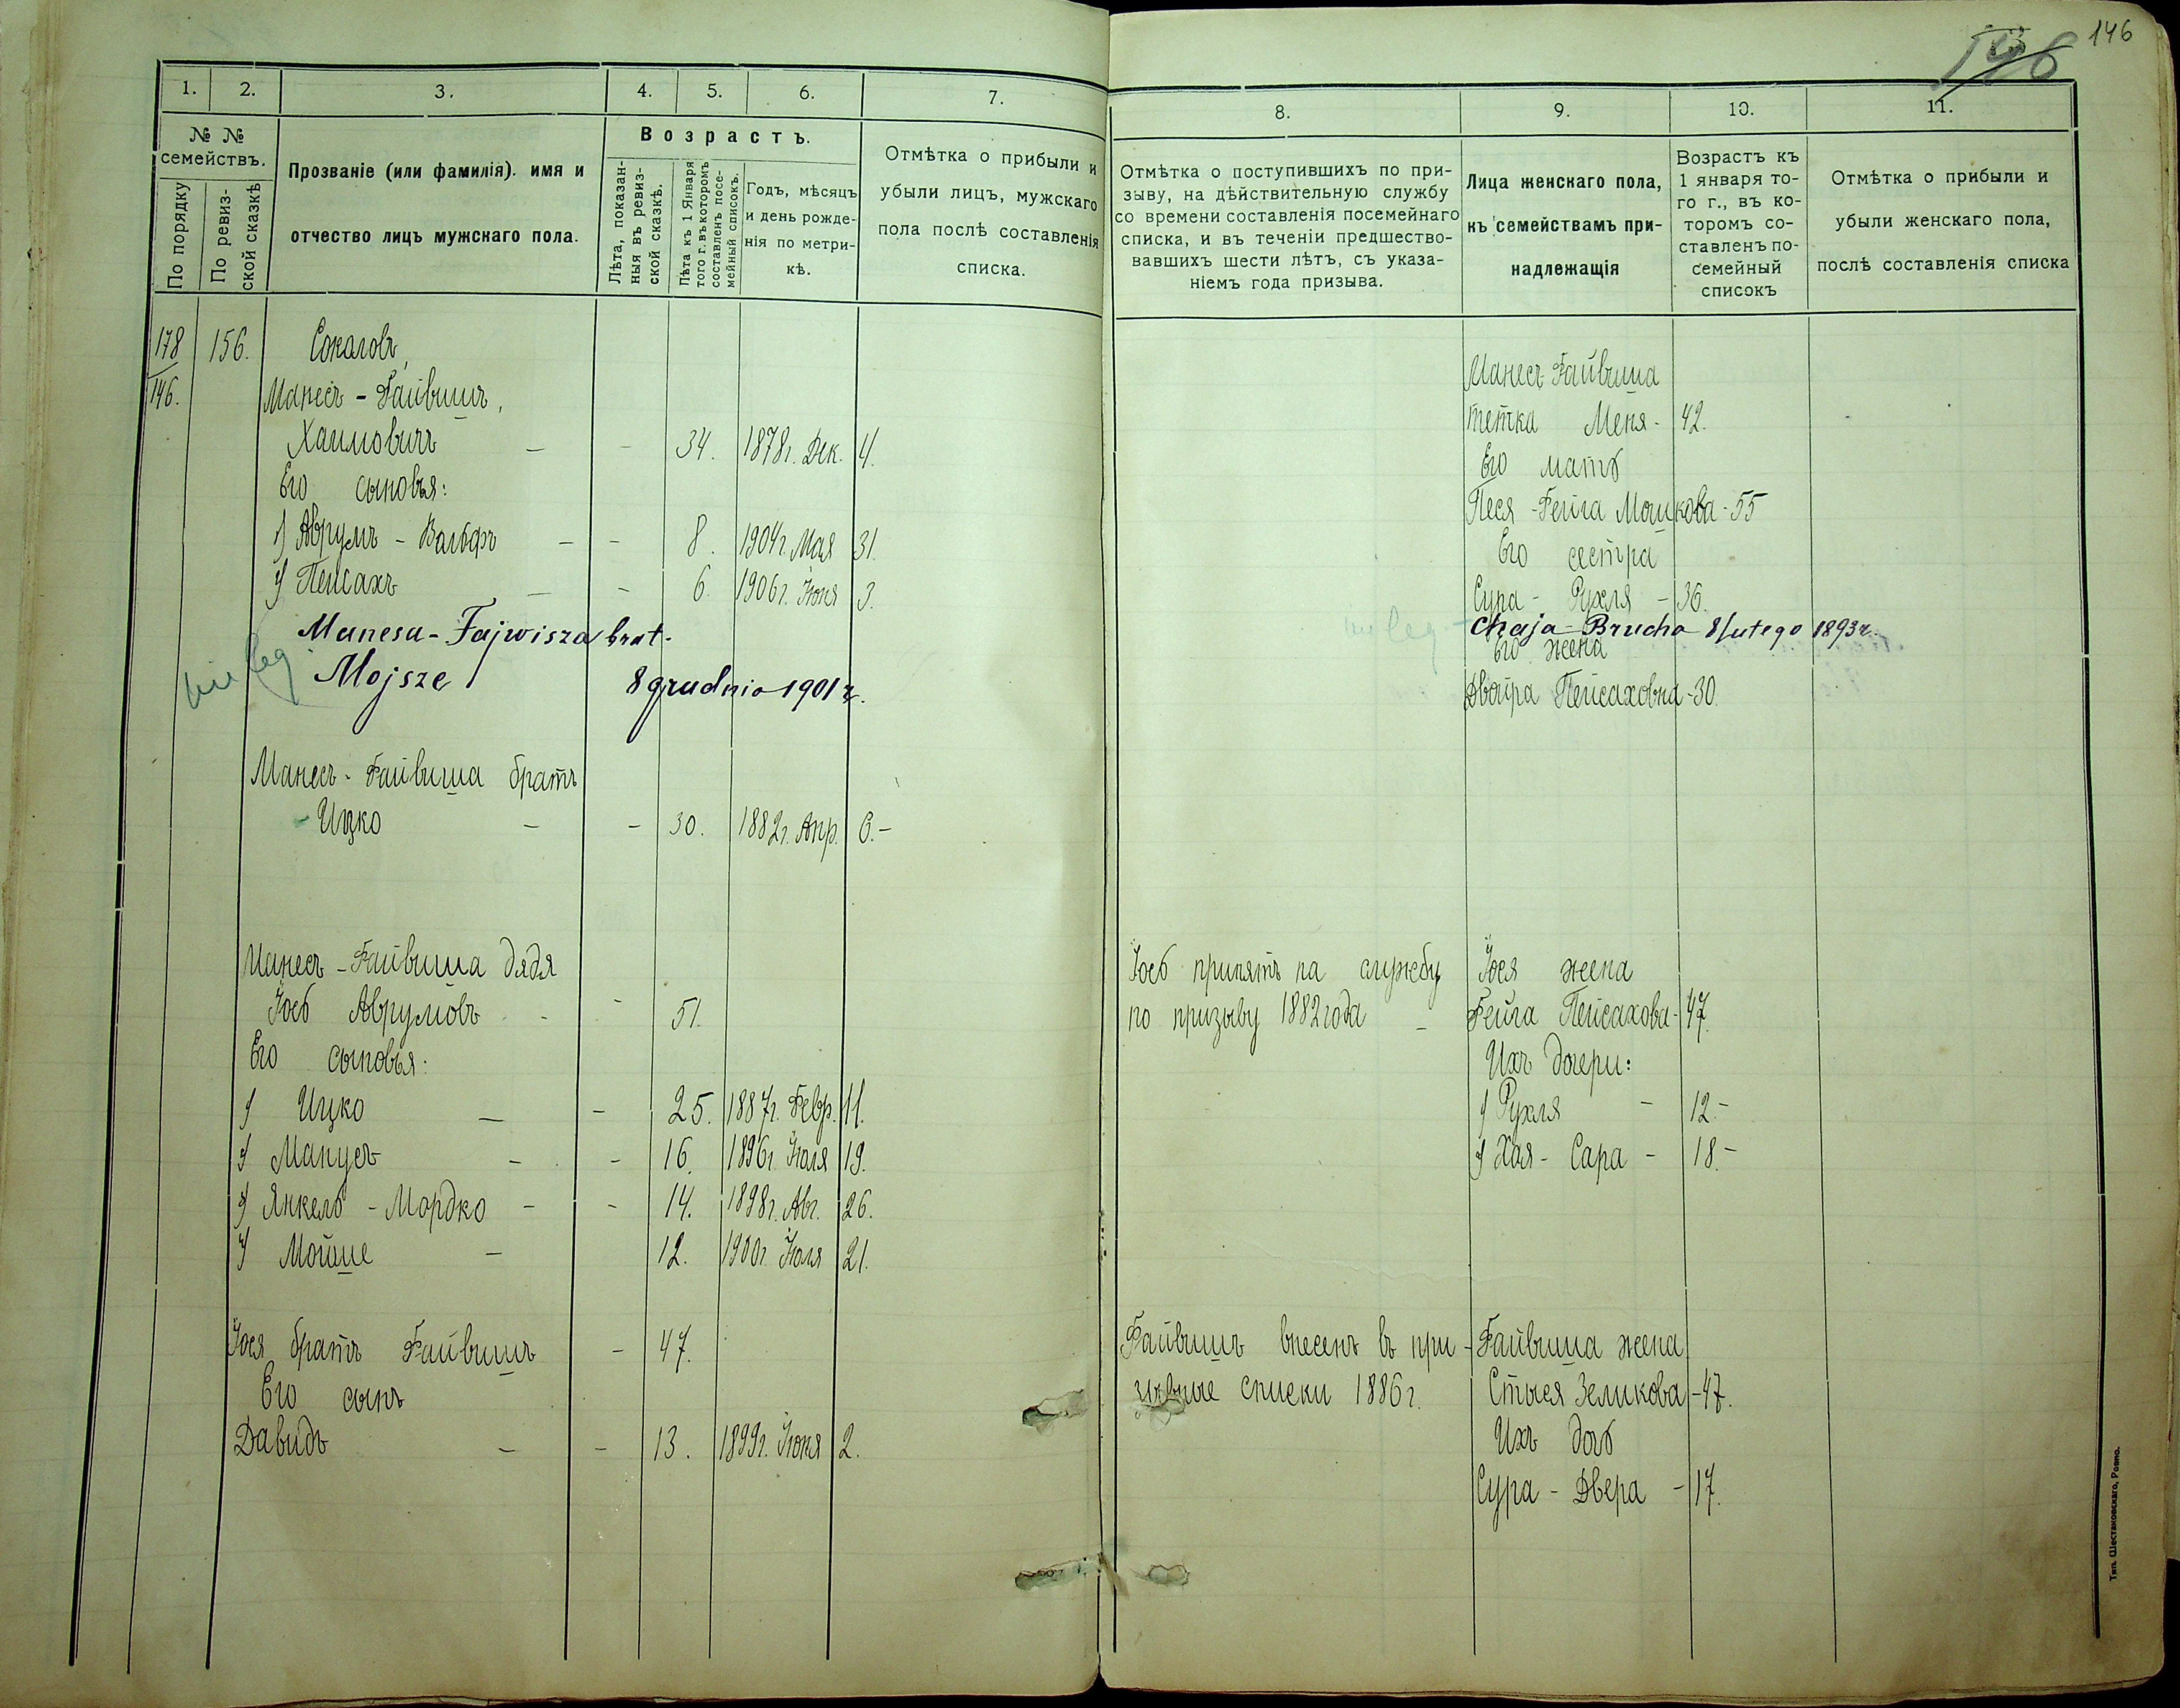 146
146
1. 2. 3. 4. 5. 6. 7.
№ №
семействъ.
По порядку
По ревиз-
ской сказкѣ
Прозваніе (или фамилія). имя и
отчество лицъ мужскаго пола.
Возрастъ.
Лѣта, показан-
ныя въ ревиз-
ской сказкѣ.
Лѣта къ 1 Января
того г. въ которомъ
составленъ посе-
мейный списокъ.
Годъ, мѣсяцъ
и день рожде-
нія по метри-
кѣ.
Отмѣтка о прибыли и
убыли лицъ, мужскаго
пола послѣ составленія
списка.
178 156. Сокаловъ
146. Манесъ - Файвишъ,
Хаимовичъ - - 34. 1878г. Дек. 4.
Его сыновья:
1) Аврумъ - Вольфъ - - 8. 1904г. Мая 31.
2) Пейсахъ - - 6. 1906г. Іюня 3.
Manesa - Fajwisza brat -
Mojsze 8 grudnia 1901 r.
Манесъ - Файвиша братъ
- Ицко - - 30. 1882г. Апр. 6. -
Манесъ - Файвиша дядя
Іось Аврумовъ - - 51.
Его сыновья:
1) Ицко - - 25. 1887г. Февр. 11.
2) Манусъ - - 16. 1896г. Іюля 19.
3) Янкель - Мордко - - 14. 1898г. Авг. 26.
4) Мойше - 12. 1900г. Іюля 21.
Іося братъ Файвишъ - 47.
Его сынъ
Давидъ - - 13. 1899г. Іюня 2.
8. 9. 10. 11.
Отмѣтка о поступившихъ по при-
зыву, на дѣйствительную службу
со времени составленія посемейнаго
списка, и въ теченіи предшество-
вавшихъ шести лѣтъ, съ указа-
ніемъ года призыва.
Лица женскаго пола,
къ семействамъ при-
надлежащія
Возрастъ къ
1 января то-
го г., въ ко-
торомъ со-
ставленъ по-
семейный
списокъ
Отмѣтка о прибыли и
убыли женскаго пола,
послѣ составленія списка
Манесъ Файвиша
тетка Меня - 42.
Его мать
Песя - Фейга Мошкова - 55
Его сестра
Сура - Рухля - 36.
Chaja - Brucha 8 lutego 1893 r.
Его жена
Двойра Пейсаховна - 30.
Іось принятъ на службу Іося жена
по призыву 1882 года - Фейга Пейсахова - 47.
Ихъ дочери:
1) Рухля - 12. -
2) Хая - Сара - 18. -
Файвишъ внесенъ въ при- Файвиша жена
зывные списки 1886 г. Стыся Зеликова - 47.
Ихъ дочь
Сура - Двера - 17.
Тип. Шестаковскаго, Ровно.